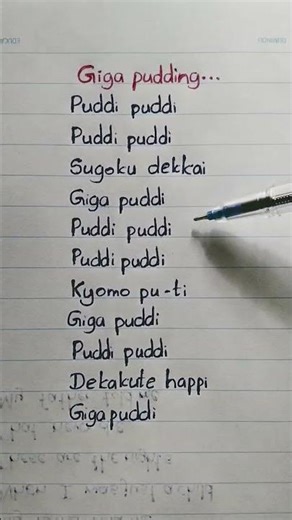 Giga pudding...
Puddi puddi
Puddi puddi
Sugoku dekkai
Giga puddi
Puddi puddi
Puddi puddi
Kyomo pu-ti
Giga puddi
Puddi puddi
Dekakute happi
Giga puddi